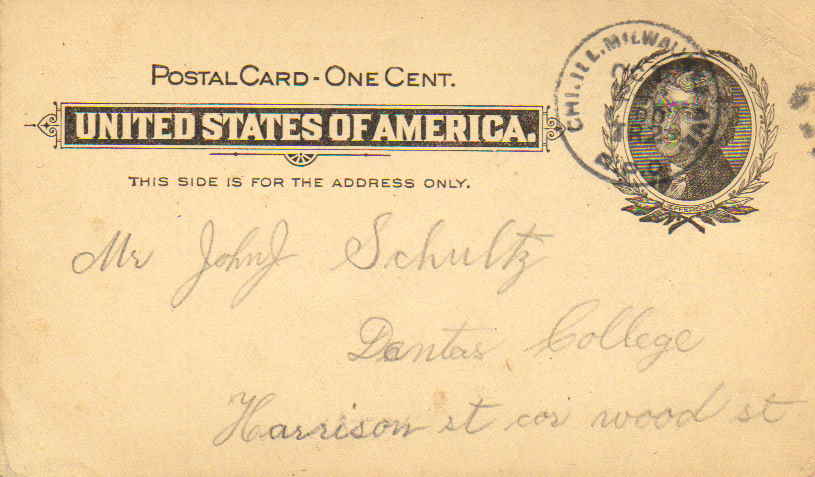 POSTAL CARD - ONE CENT.
UNITED STATES OF AMERICA.
THIS SIDE IS FOR THE ADDRESS ONLY.
CHI. ILL. MILWAU
AVE
R.P.O.
JEFFERSON
Mr John J Schultz
Dentas College
Harrison st cor wood st